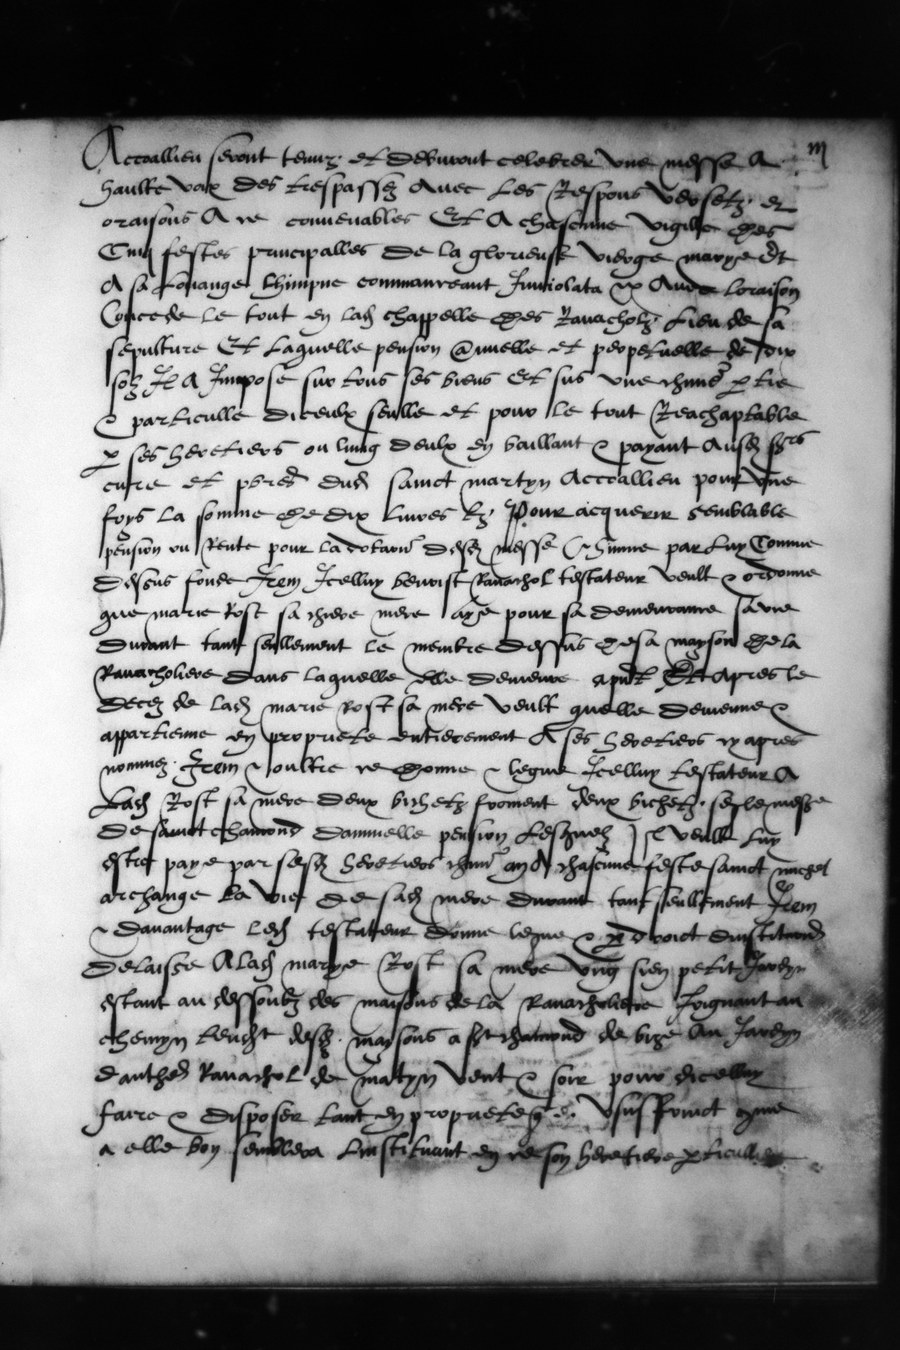 m
Accoallieu seront tenuz et debvront celebrer une messe a
haulte voix des trespassez avec les Respons versetz et
oraisons A ce convenables Et A chascune vigille des
Cinq festes principalles de la glorieuse vierge marye Et
A sa Louange Lhimpne commanceant Inviolata Loraison
Concede le tout en lad chappelle des Ravacholz Lieu de sa
sepulture Et Laquelle pension annuelle et perpetuelle de dix
solz Il A Impose sur tous ses biens Et sus une chune ptie
& particulle diceulx seulle et pour le tout Reachaptable
p ses heretiers ou lung deulx en baillant & payant Ausd srs
cure et pbres dud sainct martyn Accoallieu pour une
foys La somme de dix Livres tz Pour acquerir semblable
pension ou Rente pour la dotaon desd messe & himne par Luy Comme
dessus fonde Item Icelluy benoist Ravachol testateur veult & ordonne
que marie Rost sa chiere mere aye pour sa demeurance sa vie
durant tant seullement le membre dessus de sa mayson de la
Ravacholiere dans laquelle elle demeure apnt Et Apres le
decez de lad marie Rost sa mere veult quelle devienne &
appartienne en propriete entierement A ses heretiers cy apres
nommez Item & oultre ce donne & legue Icelluy testateur A
Lad Rost sa mere deux bichetz froment deux bichetz seigle mesure
de sainct chamond dannuelle pension Lesquelz veult Luy
estre paye par sesd heretiers chun an A chascune feste sainct michel
archange La vie de sad mere durant tant seullement Item
& davantage Led testateur donne legue & p droict dinstituon
delaisse A lad marye Rost sa mere ung sien petit Jardin
estant au dessoubz des maisons de la Ravacholiere Joignant au
chemyn tendt desd maysons a st chamond de bize Au Jardyn
danthe Ravachol de matyn vent & soir pour dicelluy
faire & disposer tant en propriete que usuffruict come
a elle bon semblera Linstituant en ce son heretiere pticulliere